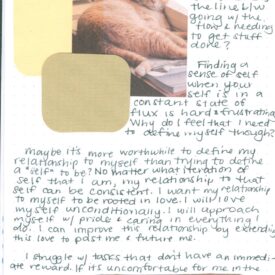 the line b/w
going w/ the
flow & needing
to get stuff
done?
Finding a
sense of self
when your
self is in a
constant state of
flux is hard & frustrating
Why do I feel that I need
to define myself though?
Maybe it's more worthwhile to define my
relationship to myself than trying to define
a "self" to be? No matter what iteration of
self that I am, my relationship to that
self can be consistent. I want my relationship
to myself to be rooted in love. I will love
myself unconditionally. I will approach
myself w/ pride & caring in everything I
do. I can improve this relationship by extending
this love to past me & future me.
I struggle w/ tasks that don't have an immedi-
ate reward. If it's uncomfortable for me in the